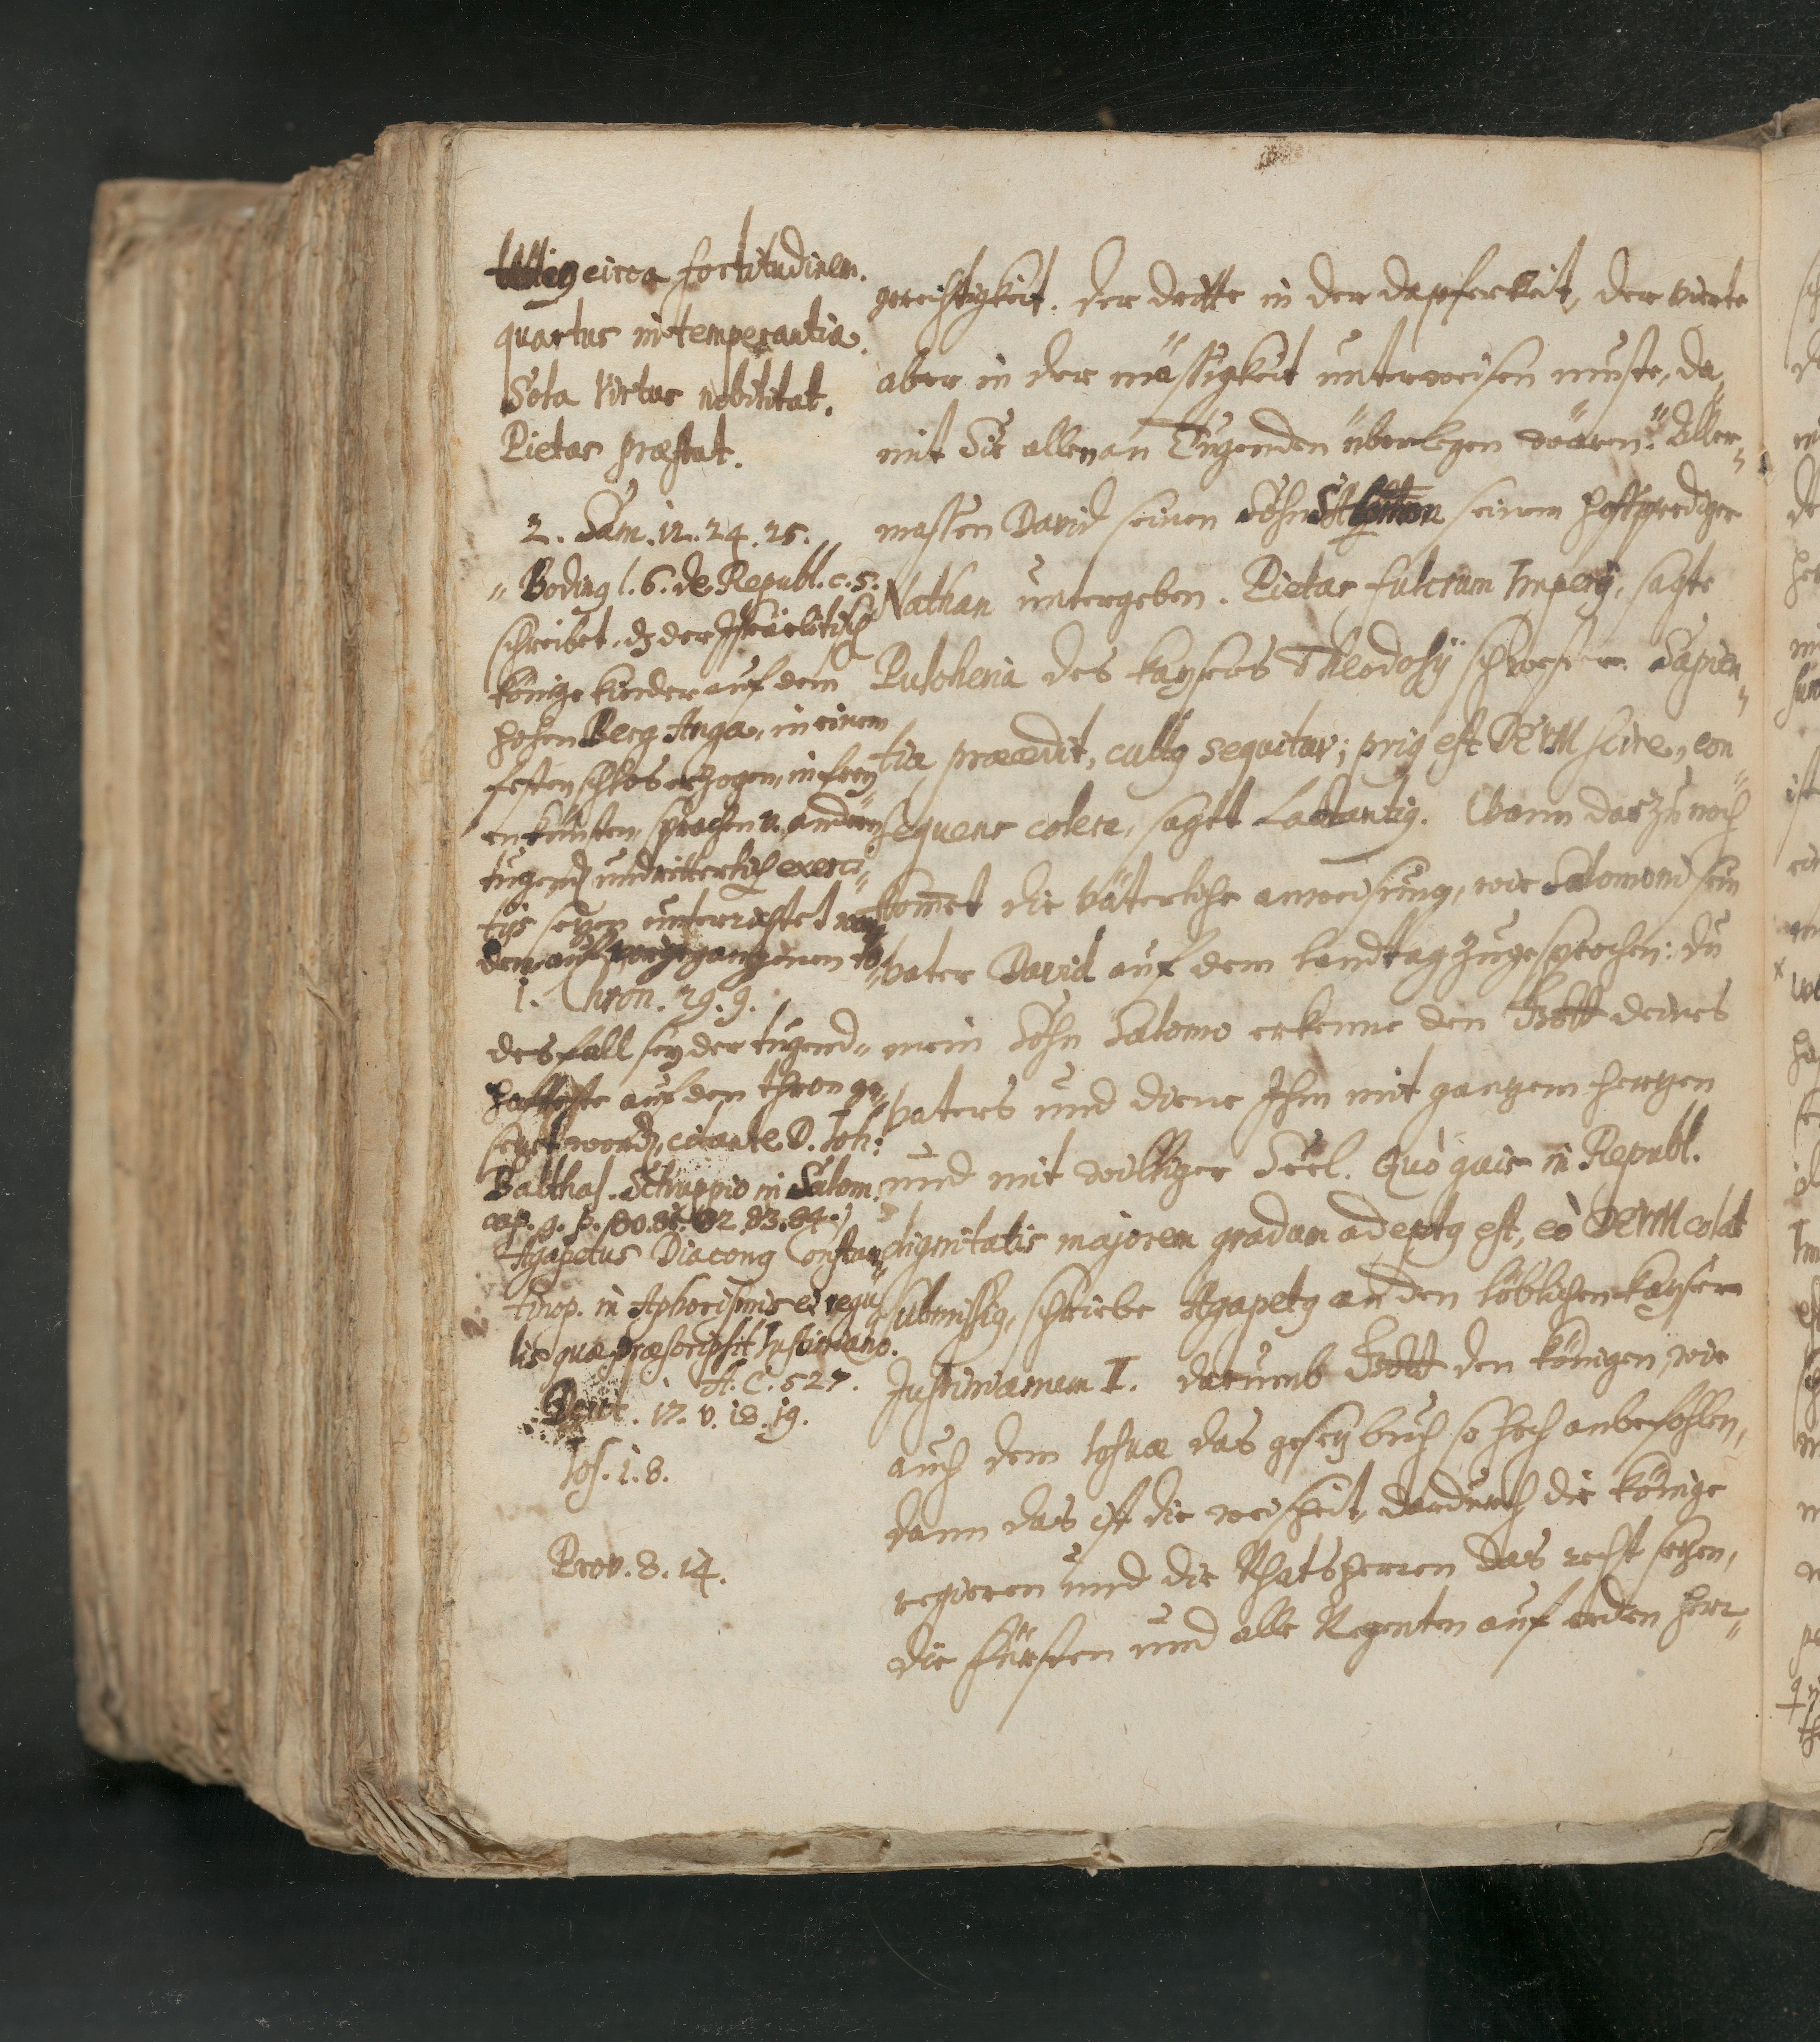 circa fortitudinem.
quartus in temperantia.
Sola Virtus nobilitat.
Pietas præstat.
2. Sam. 12. 24. 25.
" Boding l. 6. de Republ. c. 5.
schreibet, dz der Israelitisch
könige kinder auf dem
hohen Berg Anga, in einem
festen schlos erzogen, in frey
en künsten, sprachen u. andern
tugend und ritterlich exerci¬
tijs seyen unterrichtet wor
den, auf vorgegangenen to
1. Chron. 29. 9.
desfall sey der tugend¬
haffteste auf den thron ge¬
sezt word, citante D. Joh:
Balthas. Schuppio in Salom.
cap. 9. p. 80. 81. 82. 83. 84.
Agapetus Diacong Constan¬
tinop. in Aphorismis et regu
lis quæ præscripsit Justiniano.
A. C. 527.
Deut. 17. v. 18. 19.
Jos. 1. 8.
Prov. 8. 14.
gerechtigkeit. der dritte in der dapferkeit, der vierte
aber in der mässigkeit unterweisen muste, da¬
mit Sie allen an Tugenden überlegen wären. Aller¬
massen David seinen Sohn seinem hoffprediger
Nathan untergeben. Pietas fulcrum Imperij, sagte
Pulcheria des kaysers Theodosij schwester. Sapien¬
tia præcedit, cultg sequitur; prig est DEUM scire, con¬
sequens colere, sagtt Lactantig. Wann darzu noch
kom̄et die väterliche anweisung, wie Salomoni sein
vater David auf dem landtag zugesprochen: du
mein Sohn Salomo erkenne den Gott deines
vaters und diene Ihm mit ganzem herzen
und mit williger Seel. Quò quis in Republ.
dignitatis majorem gradum adeptg est, eò DEUM colat
submissig, schriebe Agapetg an den löblichen kayser
Justinianum I. darumb Gott den königen, wie
auch dem Josuæ das gesezbuch so hoch anbefohlen,
dann das ist die weisheit, dardurch die könige
regieren und die Rhatsherren das recht sezen,
die Fürsten und alle Regenten auf erden herr¬